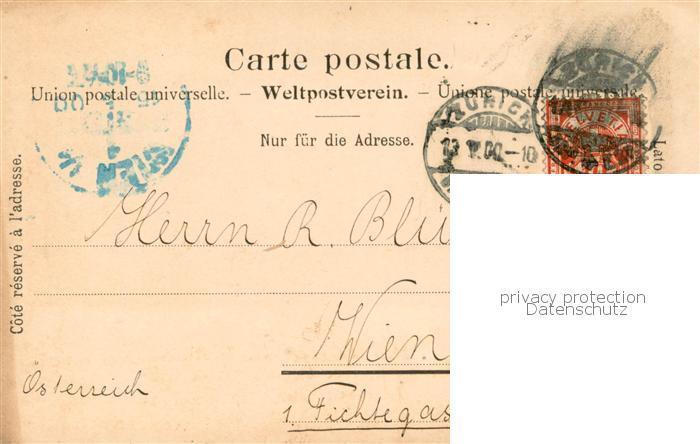 Carte postale.
Union postale universelle. – Weltpostverein. – Unione postale universale.
Nur für die Adresse.
ZÜRICH
13. V. 00.–10
Côté réservé à l'adresse.
Lato
Herrn R. Blü
Wien
Österreich
1. Fichtegas
privacy protection
Datenschutz